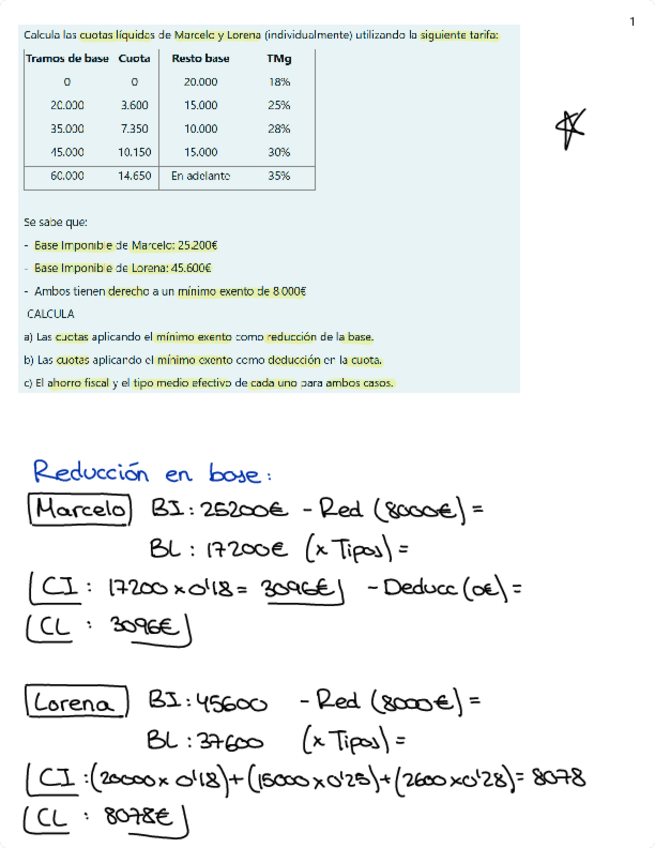 1
Calcula las cuotas líquidas de Marcelo y Lorena (individualmente) utilizando la siguiente tarifa:
Tramos de base Cuota Resto base TMg
0 0 20.000 18%
20.000 3.600 15.000 25%
35.000 7.350 10.000 28%
45.000 10.150 15.000 30%
60.000 14.650 En adelante 35%
Se sabe que:
- Base Imponible de Marcelo: 25.200€
- Base Imponible de Lorena: 45.600€
- Ambos tienen derecho a un mínimo exento de 8.000€
CALCULA
a) Las cuotas aplicando el mínimo exento como reducción de la base.
b) Las cuotas aplicando el mínimo exento como deducción en la cuota.
c) El ahorro fiscal y el tipo medio efectivo de cada uno para ambos casos.
Reducción en base:
Marcelo BI: 25200€ - Red (8000€) =
BL: 17200€ (x Tipos) =
CI: 17200 x 0'18 = 3096€ - Deducc (0€) =
CL : 3096€
Lorena BI: 45600 - Red (8000€) =
BL: 37600 (x Tipos) =
CI: (20000 x 0'18) + (15000 x 0'25) + (2600 x 0'28) = 8078
CL : 8078€